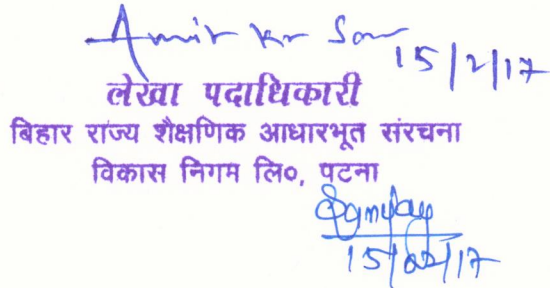 Amit Kr Sa
15/2/17
लेखा पदाधिकारी
बिहार राज्य शैक्षणिक आधारभूत संरचना
विकास निगम लि०, पटना
Sanjay
15/02/17